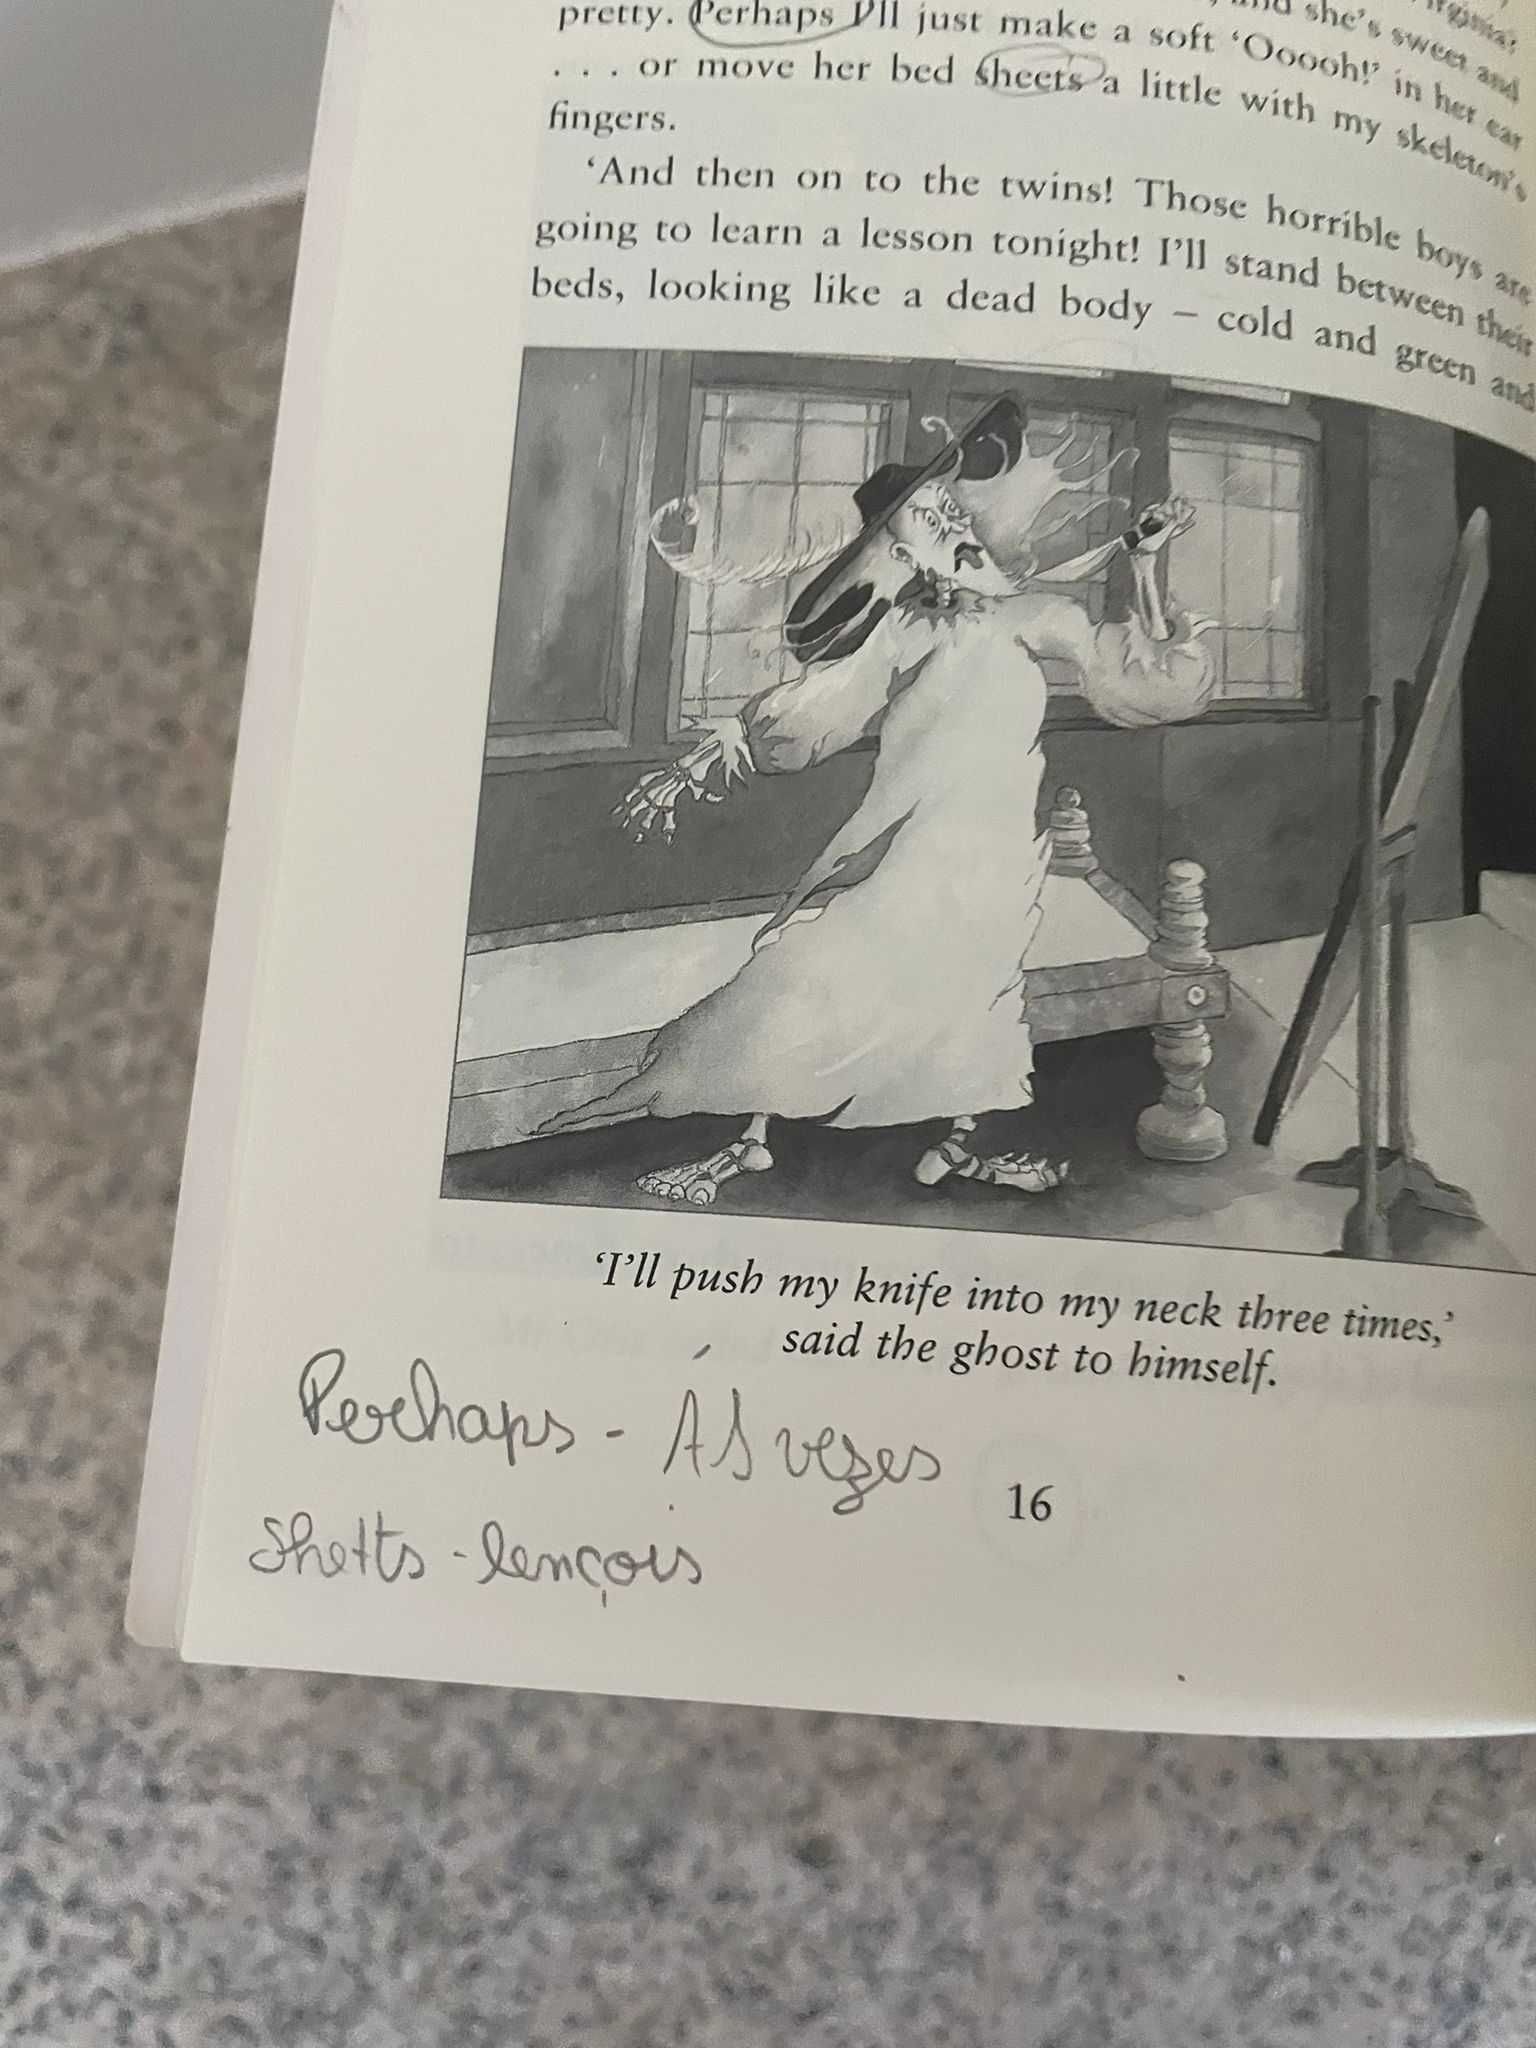 and she's sweet and
pretty. Perhaps I'll just make a soft ‘Ooooh!’ in her ear
. . . or move her bed sheets a little with my skeleton's
fingers.
‘And then on to the twins! Those horrible boys are
going to learn a lesson tonight! I'll stand between their
beds, looking like a dead body – cold and green and
‘I'll push my knife into my neck three times,’
said the ghost to himself.
Perhaps - ÁS vezes
16
Shetts - lençois